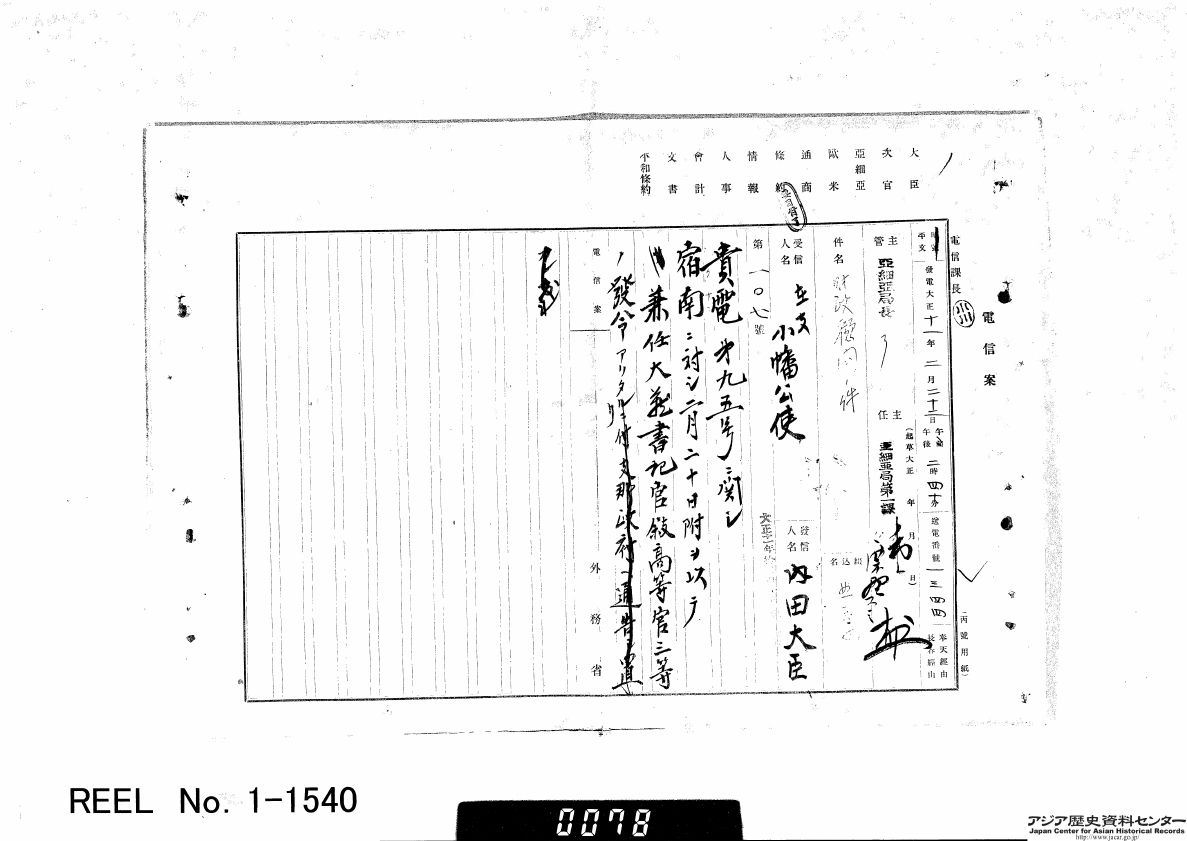 大臣
次官
亞細亞
歐米
通商
條約
情報
人事
會計
文書
平和條約
電信案
電信課長
平文
發電大正十一年二月二十二日午後二時四十分
送電番號 一三四四
奉天經由
長春經由
(丙號用紙)
主管 亞細亞局長
主任 亞細亞局第一課
(起草大正 年 月 日)
件名 財政顧問ノ件
受信人名 在支 小幡公使
發信人名 內田大臣
第一〇七號
貴電第九五号ニ関シ
宿南ニ対シ二月二十日附ヲ以テ
兼任大蔵書記官叙高等官三等
ノ發令アリタルニ付支那政府ヘ通告
電信案
外務省
REEL No. 1-1540
0078
アジア歴史資料センター
Japan Center for Asian Historical Records
http://www.jacar.go.jp/